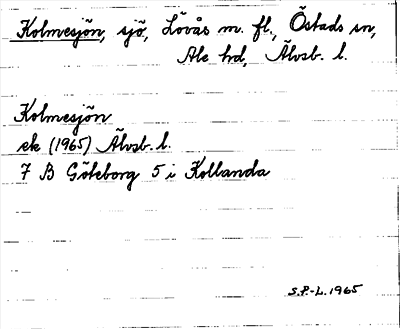 Kolmesjön, sjö, Lövås m. fl., Östads sn,
Ale hd, Älvsb. l.
Kolmesjön
ek (1965) Älvsb. l.
7 B Göteborg 5 i Kollanda
S.P.-L. 1965